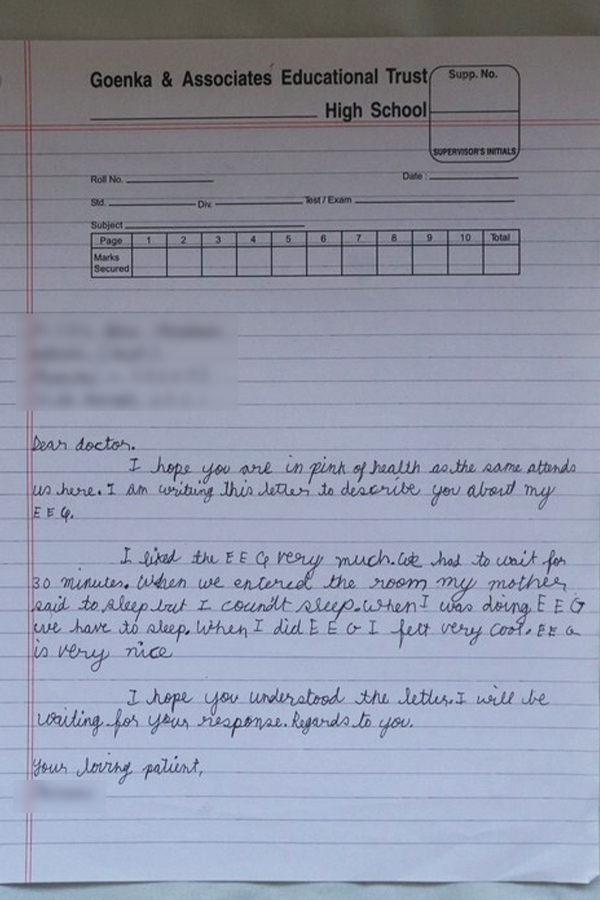 Goenka & Associates Educational Trust
High School
Supp. No.
SUPERVISOR'S INITIALS
Roll No.
Date :
Std.
Div.
Test / Exam
Subject
Page 1 2 3 4 5 6 7 8 9 10 Total
Marks
Secured
Dear doctor.
I hope you are in pink of health as the same attends
us here. I am writing this letter to describe you about my
EEG.
I liked the EEG very much. We had to wait for
30 minutes. When we entered the room my mother
said to sleep but I coundt sleep. When I was doing EEG
we have to sleep. When I did EEG I felt very cool. EEG
is very nice
I hope you understood the letter. I will be
waiting for your response. Regards to you.
Your loving patient,